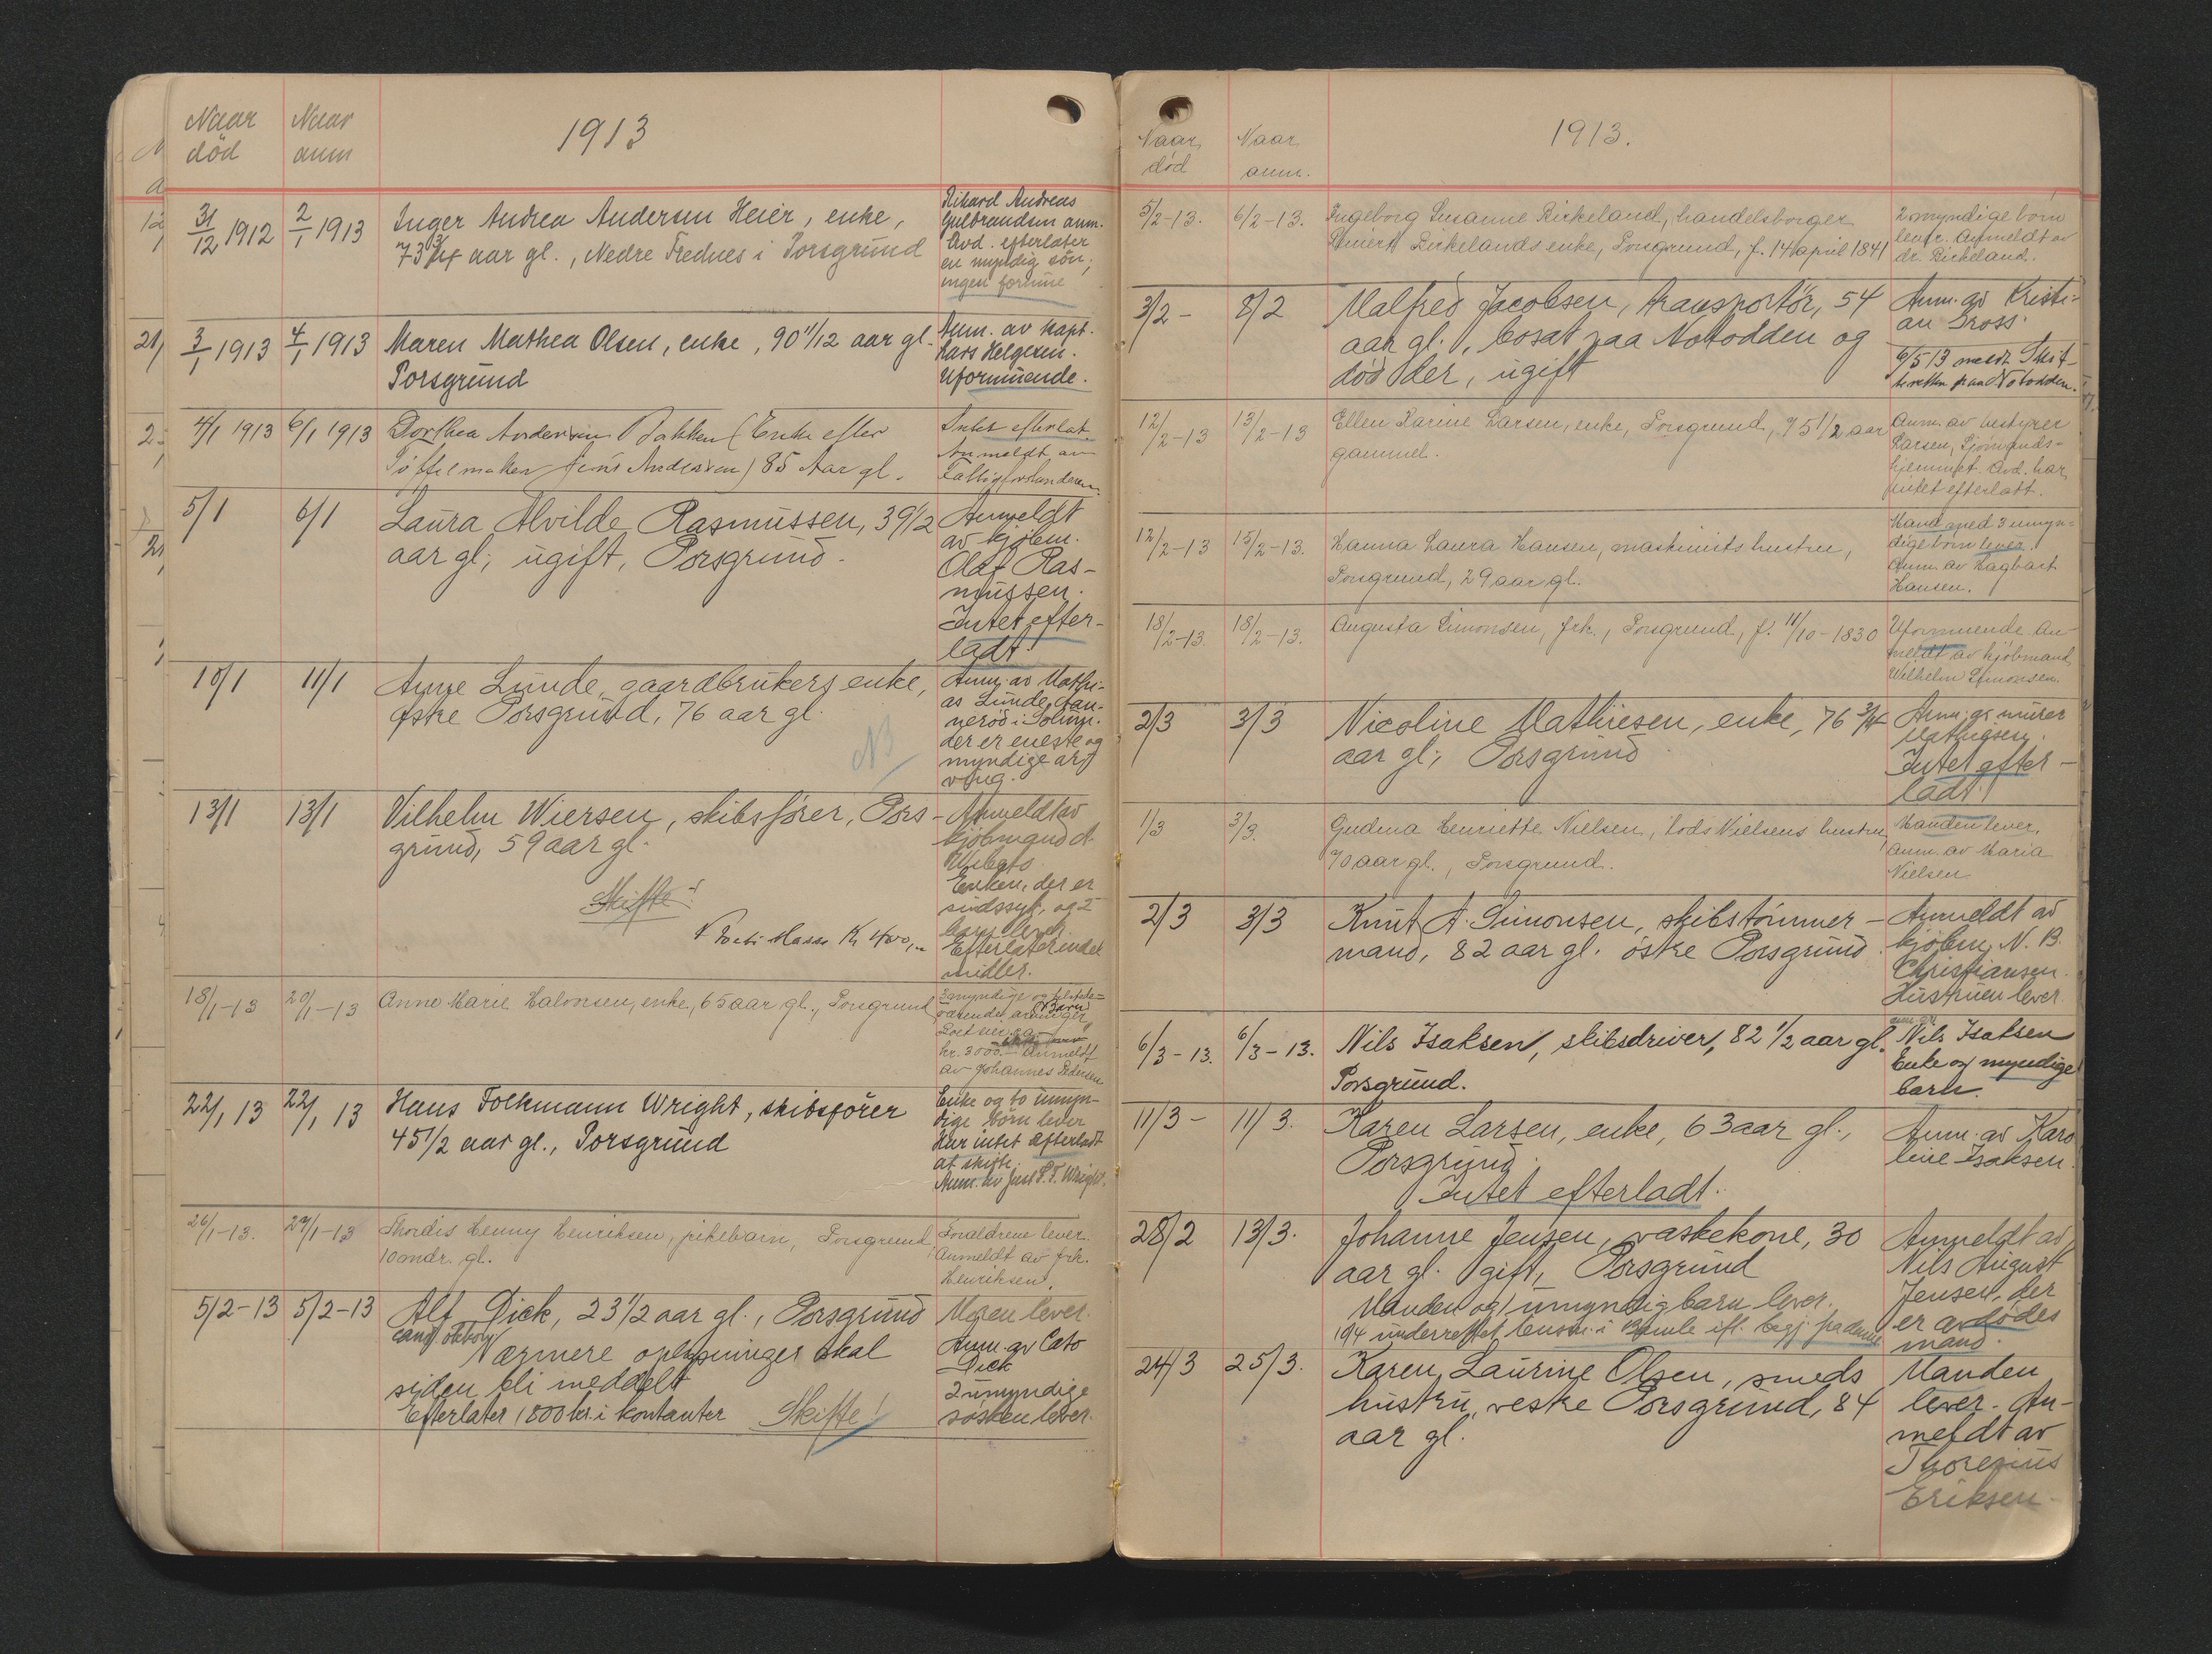 Naar død
Naar anm
1913
31/12 1912
2/1 1913
Inger Andrea Andersen Heier, enke,
73 3/4 aar gl., Nedre Frednes i Porsgrund
Rikard Andreas
Gulbrandsen anm.
Avd. efterlater
en myndig søn,
ingen formue
3/1 1913
4/1 1913
Maren Mathea Olsen, enke, 90 11/12 aar gl.
Porsgrund
Anm. av kapt.
Lars Helgesen.
Uformuende.
4/1 1913
6/1 1913
Dorthea Andersen Bakken (Enke efter
Tøffelmaker Jens Andersen) 85 Aar gl.
Intet efterlat.
Anmeldt av
Fattigforstanderen.
5/1
6/1
Laura Alvilde Rasmussen, 39 1/2
aar gl, ugift, Porsgrund.
Anmeldt
av kjøbm.
Olaf Ras-
mussen.
Intet efter-
ladt!
10/1
11/1
Anne Lunde, gaardbrukers enke,
østre Porsgrund, 76 aar gl.
NB
Anm. av Mathi-
as Lunde,
i Solum.
der er eneste og
myndige arv
ving.
13/1
13/1
Vilhelm Wiersen, skibsfører, Pors-
grund, 59 aar gl.
Skifte!
Masse Kr 400,-
Anmeldt av
kjøbmand A.
Enken, der er
sindssyk, og 2
barn lever.
Efterlater
midler.
18/1-13
20/1-13
Anne Marie Halvorsen, enke, 65 aar gl., Porsgrund
3 myndige og
arvinger
kr. 3000.- Anmeldt
av Johannes Pedersen
22/1 13
22/1 13
Hans Folkmann Wright, skibsfører
45 1/2 aar gl., Porsgrund
Enke og to umyn-
dige børn lever
Har intet efterladt
at skifte.
Anm. av Just P. T. Wright.
26/1-13.
27/1-13
Thordis Henny Henriksen, pikebarn, Porsgrund
10 mdr. gl.
Foraldrene lever.
Anmeldt av frk.
Henriksen.
5/2-13
5/2-13
Alf Dick, 23 1/2 aar gl., Porsgrund
Nærmere oplysninger skal
siden bli meddelt
Efterlater 1800 kr. i kontanter Skifte!
Moren lever.
Anm. av Cato
Dick
2 umyndige
søsken lever.
Naar død
Naar anm.
1913.
5/2-13.
6/2-13.
Ingeborg Susanne Birkeland, handelsborger
Birkelands enke, Porsgrund, f. 14 april 1841
2 myndige børn
lever. Anmeldt av
dr. Birkeland.
3/2-
8/2
Malfred Jacobsen, transportør, 54
aar gl., bosat paa Notodden og
død der, ugift
Anm. av Kristi-
an Bross.
6/5 13 meldt Skif-
teretten paa Notodden.
12/2-13
13/2-13
Ellen Karine Larsen, enke, Porsgrund, 75 1/2 aar
gammel.
Anm. av bestyrer
Larsen, Sjømands-
hjemmet. Avd. har
intet efterlatt.
12/2-13
15/2-13.
Hanna Laura Hansen, maskinists hustru,
Porsgrund, 29 aar gl.
Mand med 3 umyn-
dige børn lever.
Anm. av Dagbart
Hansen.
18/2-13.
18/2-13.
Augusta Simonsen, frk., Porsgrund, f. 11/10-1830
Uformuende An-
meldt av kjøbmand
Wilhelm Simonsen.
2/3
3/3
Nicoline Mathiesen, enke, 76 3/4
aar gl; Porsgrund
Anm. av murer
Mathiesen.
Intet efter-
ladt!
1/3
3/3.
Gudma Henriette Nielsen, lods Nielsens hustru,
70 aar gl., Porsgrund.
Manden lever.
Anm. av Maria
Nielsen
2/3
3/3
Knut A. Simonsen, skibstømmer-
mand, 82 aar gl. østre Porsgrund.
Anmeldt av
kjøbm. N. B.
Christiansen.
Hustruen lever
6/3-13.
6/3-13.
Nils Isaksen, skibsdriver, 82 1/2 aar gl.
Porsgrund.
Nils Isaksen
Enke og myndige
barn.
11/3-
11/3.
Karen Larsen, enke, 63 aar gl.,
Porsgrund.
Intet efterladt.
Anm. av Karo
line Isaksen.
28/2
13/3.
Johanne Jensen, vaskekone, 30
aar gl. gift, Porsgrund
Manden og 1 umyndig barn lever.
19/4 underrettet lensm. i Bamle
Anmeldt av
Nils August
Jensen, der
er avdødes
mand.
24/3
25/3.
Karen Laurine Olsen, smeds
hustru, vestre Porsgrund, 84
aar gl.
Manden
lever. An-
meldt av
Thorenius
Eriksen.